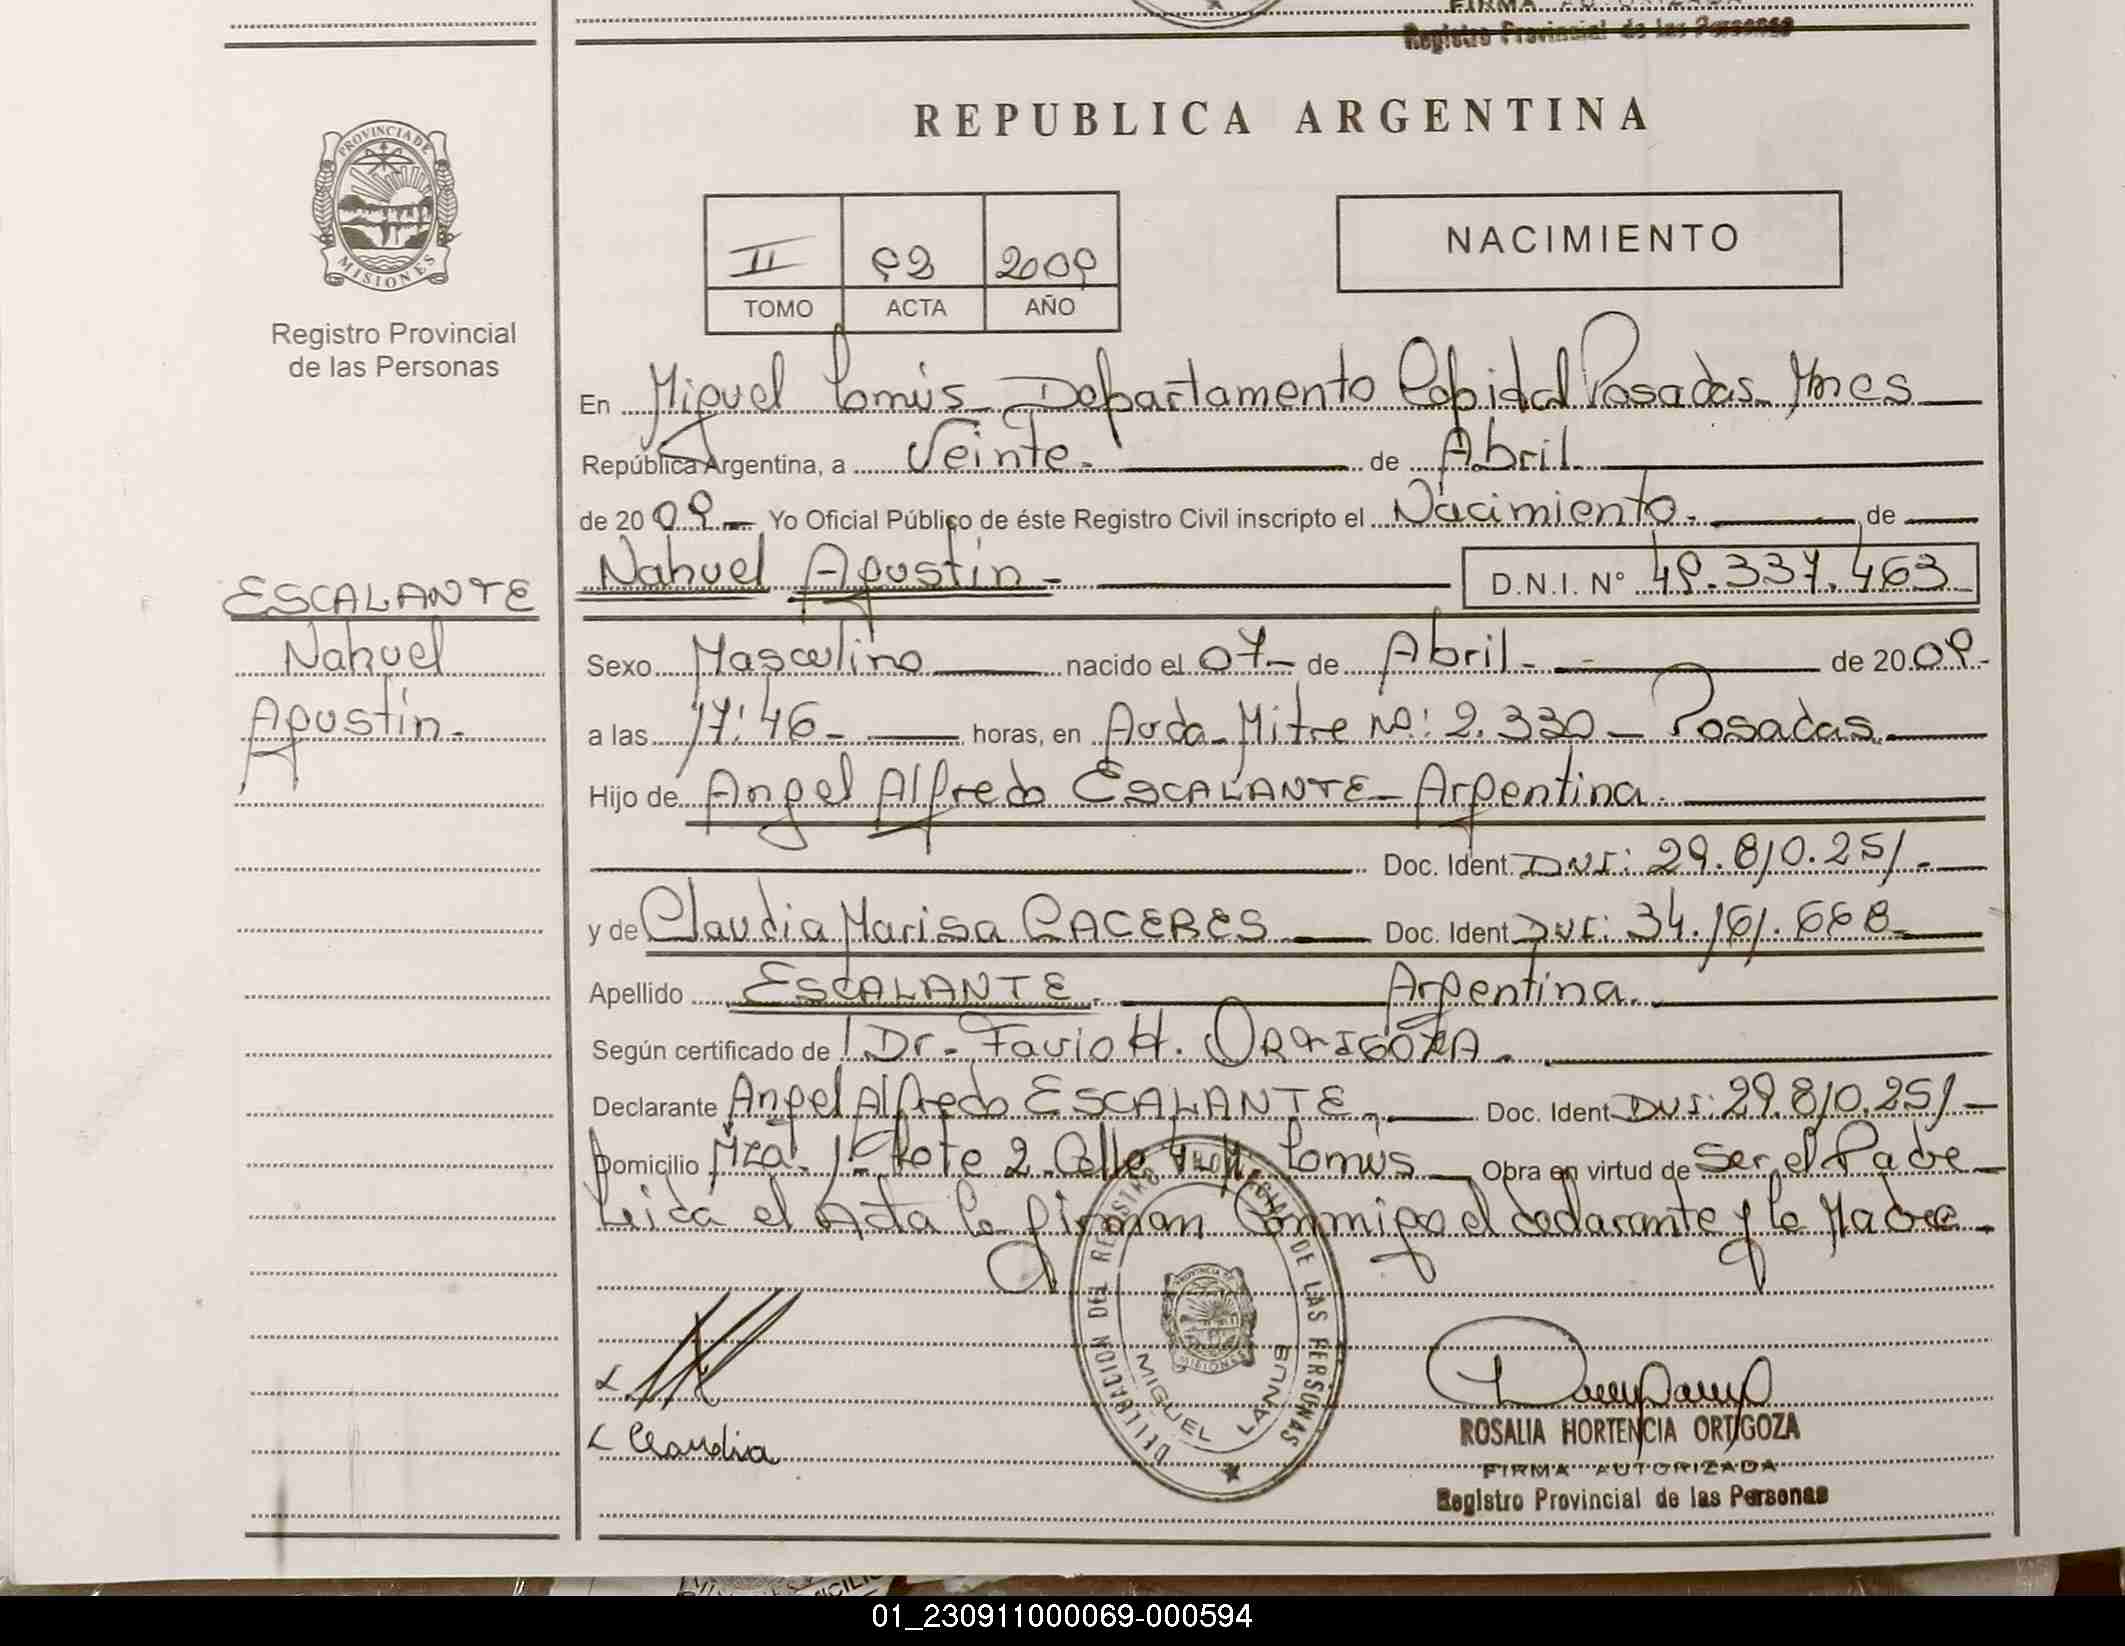 FIRMA AUTORIZADA
Registro Provincial de las Personas
PROVINCIA DE
MISIONES
Registro Provincial
de las Personas
REPUBLICA ARGENTINA
II 92 2009
TOMO ACTA AÑO
NACIMIENTO
En Miguel Lanús Departamento Capital Posadas Mnes
República Argentina, a Veinte. de Abril.
de 20 09 Yo Oficial Público de éste Registro Civil inscripto el Nacimiento. de
Nahuel Agustín - D.N.I. N° 49.337.463
ESCALANTE
Nahuel
Agustín.
Sexo Masculino nacido el 07 de Abril. de 20 09.
a las 17:46 horas, en Avda. Mitre Nº: 2.330 - Posadas.
Hijo de Angel Alfredo ESCALANTE - Argentina.
Doc. Ident. DNI: 29.810.251.-
y de Claudia Marisa CACERES Doc. Ident DNI: 34.161.668
Apellido ESCALANTE. Argentina.
Según certificado de Dr. Favio H. ORTIGOZA.
Declarante Angel Alfredo ESCALANTE. Doc. Ident DNI: 29.810.251
Domicilio Mza. Lote 2 Calle Lanús Obra en virtud de Ser el Padre
Leida el Acta la firman Conmigo el declarante y la Madre.
DELEGACION DEL REGISTRO PROVINCIAL DE LAS PERSONAS
PROVINCIA DE
MISIONES
MIGUEL LANUS
Claudia
ROSALIA HORTENCIA ORTIGOZA
FIRMA AUTORIZADA
Registro Provincial de las Personas
01_230911000069-000594